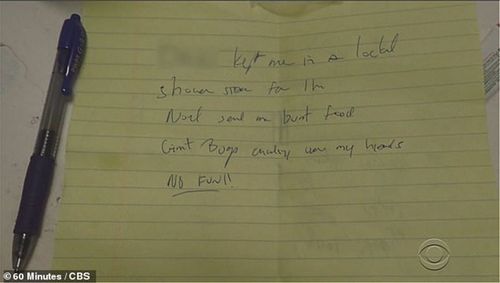 kept me in a locked
shower stall for 1 hr
Noel sent me burnt food
Giant Bugs crawling over my hands
NO FUN!!
©60 Minutes / CBS